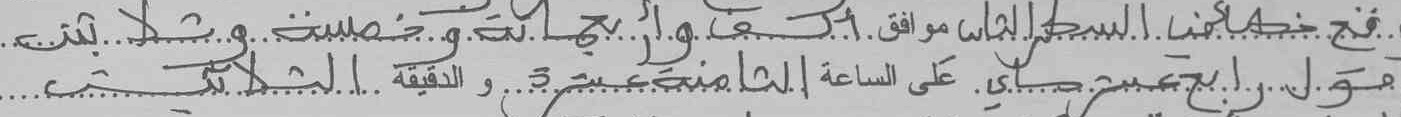 السطر الثاني موافق ألف وأربعمائة وخمسة وثلاثين
رابع عشر ماي على الساعة الثامنة عشرة و الدقيقة الثلاثين